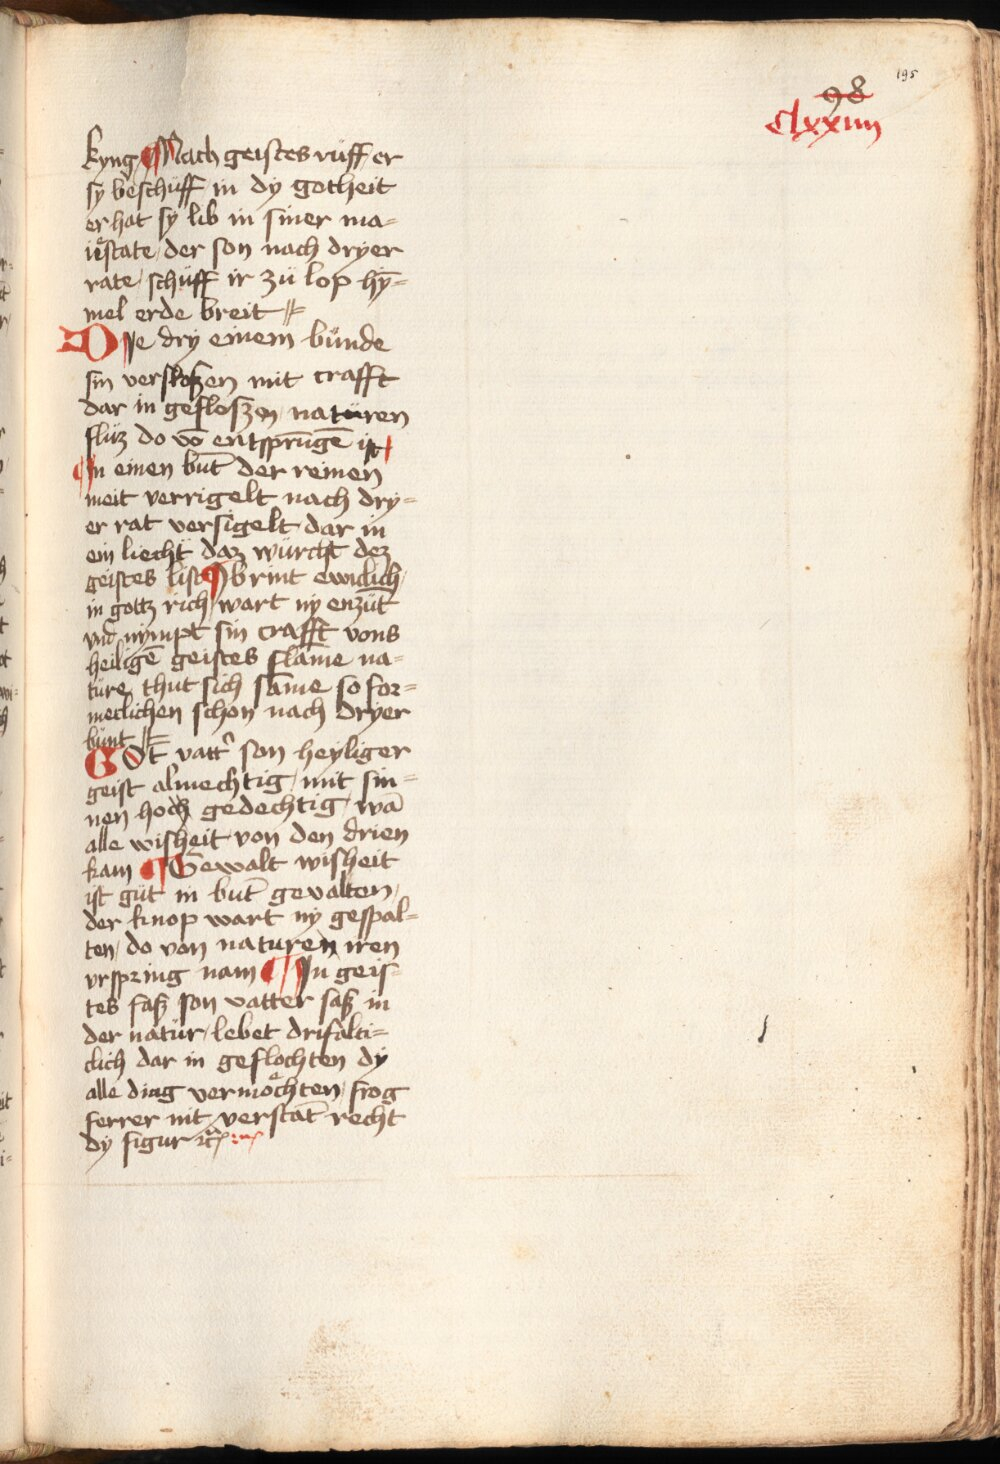 195
98
Clxxiiii
kyng Nach geistes rüff er
sy beschüff in dy gotheit
er hat sy lib in siner ma=
iestate / der son nach dryer
rate / schüff ir zü lop hȳ=
mel erde breit
Die dry einem bünde
sin versloszen mit crafft
dar in gefloszen naturen
flüz do vō entsprūngē ist
In einen būt der reinen
meit verrigelt nach dry=
er rat versigelt dar in
ein liecht daz würcht dez
geistes list brint ewiclich /
in gottz rich / wart ny enzüt
vnd nympt sin crafft vons
heiligē geistes flāme na=
ture thut sich sāme so for=
metlichen schon nach dryer
bünt
Got vatt' son heyliger
geist almechtig / mit sin=
nen hoch gedechtig / wā
alle wisheit von den drien
kam Gewalt wisheit
ist güt in būt gevalten /
der knop wart ny gespal=
ten / do von naturen iren
vrspring nam In geis=
tes fasz son vatter sasz in
der natür / lebet drifalti=
clich dar in geflochten dy
alle ding vermochten / frog
ferrer nit verstāt recht
dy figur